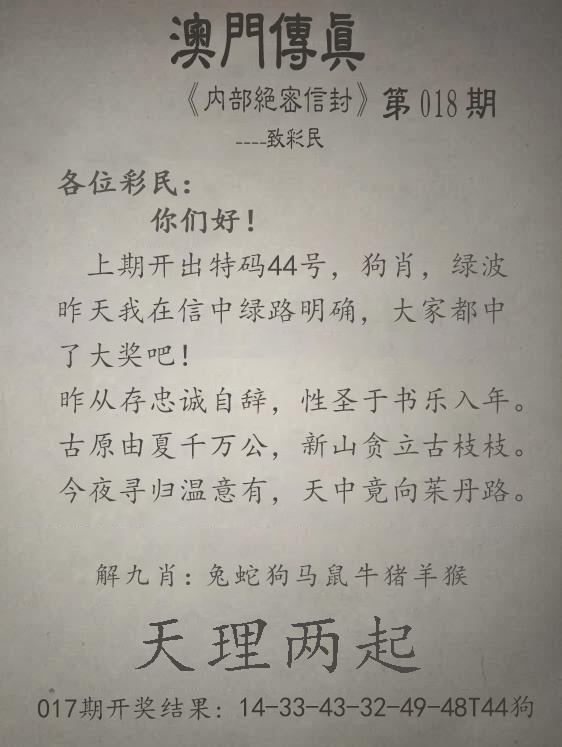 澳門傳眞
《内部絕密信封》第018期
----致彩民
各位彩民：
你们好！
上期开出特码44号，狗肖，绿波
昨天我在信中绿路明确，大家都中
了大奖吧！
昨从存忠诚自辞，性圣于书乐入年。
古原由夏千万公，新山贪立古枝枝。
今夜寻归温意有，天中竟向茱丹路。
解九肖：兔蛇狗马鼠牛猪羊猴
天理两起
017期开奖结果：14-33-43-32-49-48T44狗